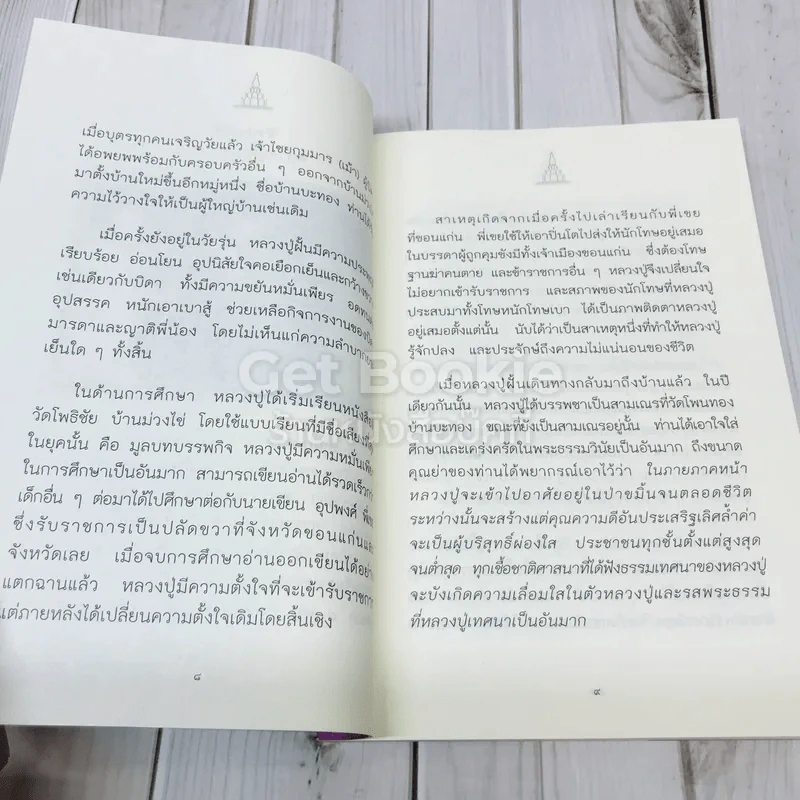 เมื่อบุตรทุกคนเจริญวัยแล้ว เจ้าไชยกุมมาร (เม้า) ผู้
ได้อพยพพร้อมกับครอบครัวอื่น ๆ ออกจากบ้าน
มาตั้งบ้านใหม่ขึ้นอีกหมู่หนึ่ง ชื่อบ้านบะทอง ท่าน
ความไว้วางใจให้เป็นผู้ใหญ่บ้านเช่นเดิม
เมื่อครั้งยังอยู่ในวัยรุ่น หลวงปู่ฝั้นมีความ
เรียบร้อย อ่อนโยน อุปนิสัยใจคอเยือกเย็นและกว้าง
เช่นเดียวกับบิดา ทั้งมีความขยันหมั่นเพียร อดทน
อุปสรรค หนักเอาเบาสู้ ช่วยเหลือกิจการงานของ
มารดาและญาติพี่น้อง โดยไม่เห็นแก่ความลำบาก
เย็นใด ๆ ทั้งสิ้น
ในด้านการศึกษา หลวงปู่ได้เริ่มเรียนหนังสือ
วัดโพธิชัย บ้านม่วงไข่ โดยใช้แบบเรียนที่มีชื่อเสียง
ในยุคนั้น คือ มูลบทบรรพกิจ หลวงปู่มีความหมั่นเพียร
ในการศึกษาเป็นอันมาก สามารถเขียนอ่านได้รวดเร็ว
เด็กอื่น ๆ ต่อมาได้ไปศึกษาต่อกับนายเขียน อุปพงศ์
ซึ่งรับราชการเป็นปลัดขวาที่จังหวัดขอนแก่นและ
จังหวัดเลย เมื่อจบการศึกษาอ่านออกเขียนได้อย่าง
แตกฉานแล้ว หลวงปู่มีความตั้งใจที่จะเข้ารับราชการ
แต่ภายหลังได้เปลี่ยนความตั้งใจเดิมโดยสิ้นเชิง
๘
สาเหตุเกิดจากเมื่อครั้งไปเล่าเรียนกับพี่เขย
ที่ขอนแก่น พี่เขยใช้ให้เอาปิ่นโตไปส่งให้นักโทษอยู่เสมอ
ในบรรดาผู้ถูกคุมขังมีทั้งเจ้าเมืองขอนแก่น ซึ่งต้องโทษ
ฐานฆ่าคนตาย และข้าราชการอื่น ๆ หลวงปู่จึงเปลี่ยนใจ
ไม่อยากเข้ารับราชการ และสภาพของนักโทษที่หลวงปู่
ประสบมาทั้งโทษหนักโทษเบา ได้เป็นภาพติดตาหลวงปู่
อยู่เสมอตั้งแต่นั้น นับได้ว่าเป็นสาเหตุหนึ่งที่ทำให้หลวงปู่
รู้จักปลง และประจักษ์ถึงความไม่แน่นอนของชีวิต
เมื่อหลวงปู่ฝั้นเดินทางกลับมาถึงบ้านแล้ว ในปี
เดียวกันนั้น หลวงปู่ได้บรรพชาเป็นสามเณรที่วัดโพนทอง
บ้านบะทอง ขณะที่ยังเป็นสามเณรอยู่นั้น ท่านได้เอาใจใส่
ศึกษาและเคร่งครัดในพระธรรมวินัยเป็นอันมาก ถึงขนาด
คุณย่าของท่านได้พยากรณ์เอาไว้ว่า ในภายภาคหน้า
หลวงปู่จะเข้าไปอาศัยอยู่ในป่าขมิ้นจนตลอดชีวิต
ระหว่างนั้นจะสร้างแต่คุณความดีอันประเสริฐเลิศล้ำค่า
จะเป็นผู้บริสุทธิ์ผ่องใส ประชาชนทุกชั้นตั้งแต่สูงสุด
จนต่ำสุด ทุกเชื้อชาติศาสนาที่ได้ฟังธรรมเทศนาของหลวงปู่
จะบังเกิดความเลื่อมใสในตัวหลวงปู่และรสพระธรรม
ที่หลวงปู่เทศนาเป็นอันมาก
๙
Get Bookie